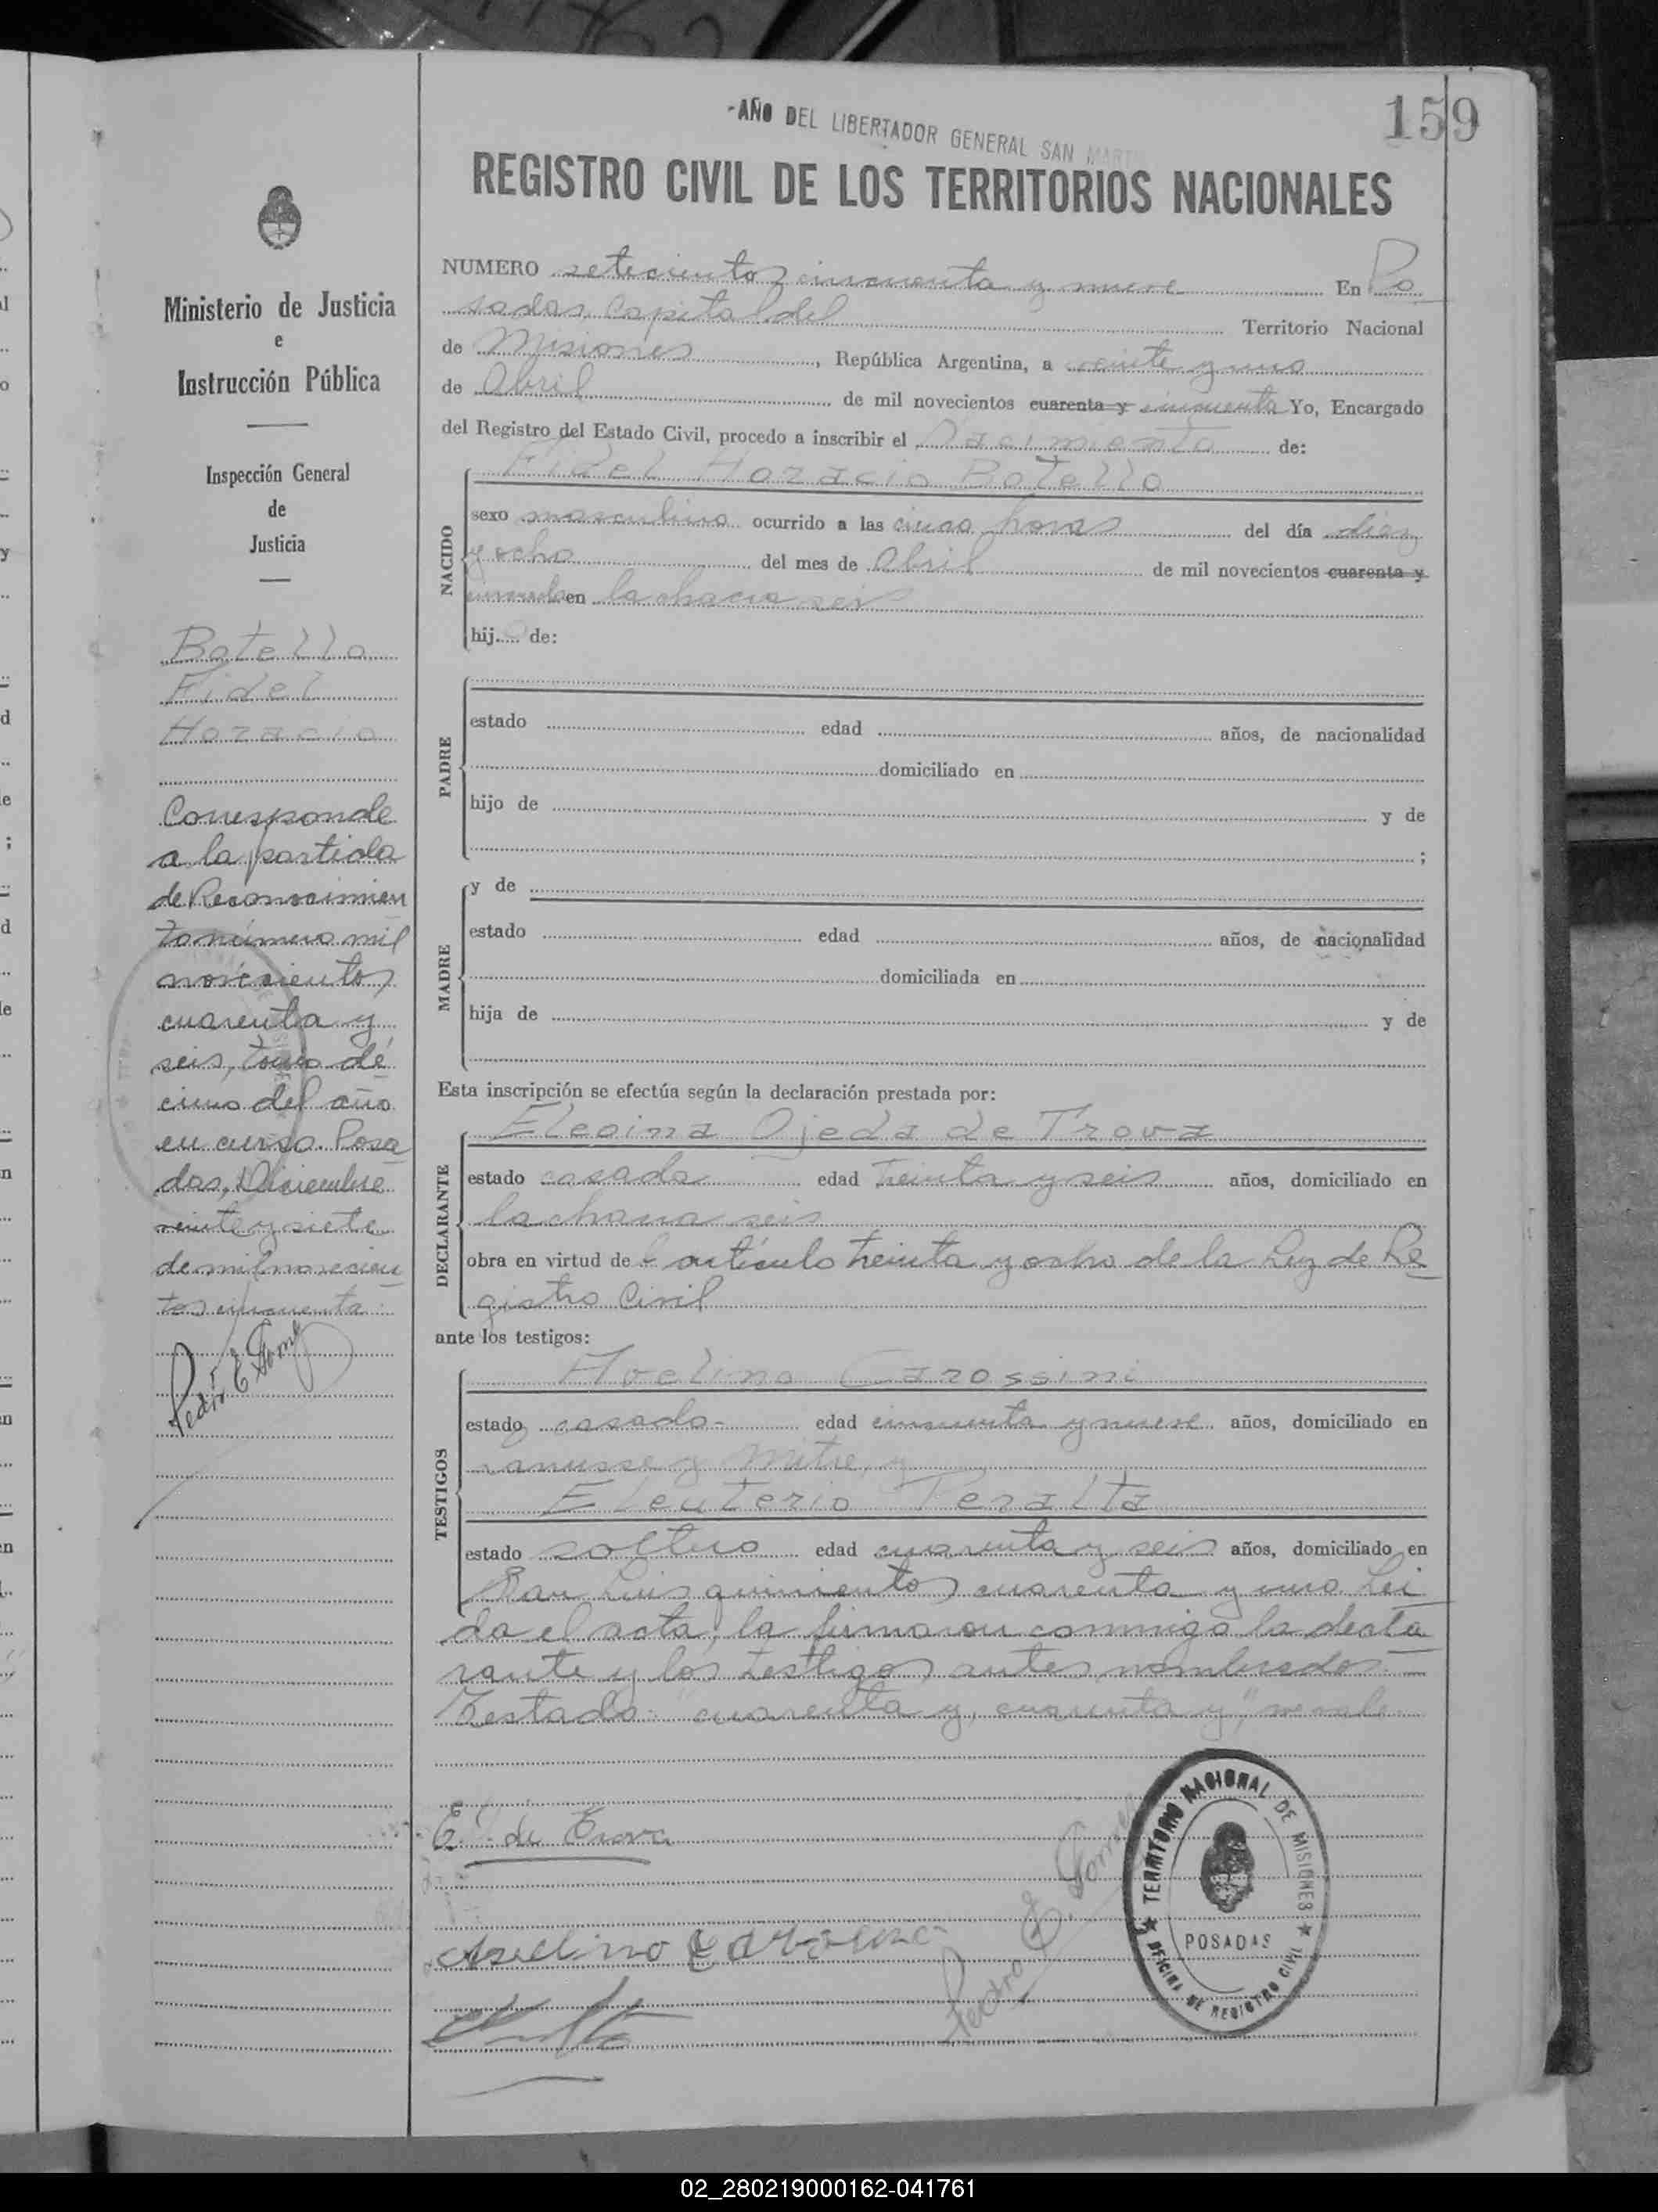 -AÑO DEL LIBERTADOR GENERAL SAN MARTIN
159
REGISTRO CIVIL DE LOS TERRITORIOS NACIONALES
Ministerio de Justicia
e
Instrucción Pública
Inspección General
de
Justicia
Botello
Fidel
Horacio
Corresponde
a la partida
de Reconocimien
to número mil
novecientos
cuarenta y
seis, tomo dé
cimo del año
en curso. Posa
das, Diciembre
veinte y siete
de mil novecien
tos cincuenta.
Pedro E. Gomez
NUMERO setecientos cincuenta y nueve En Po
sadas Capital del Territorio Nacional
de Misiones, República Argentina, a veinte y uno
de Abril de mil novecientos cuarenta y cincuenta Yo, Encargado
del Registro del Estado Civil, procedo a inscribir el nacimiento de:
NACIDO
Fidel Horacio Botello
sexo masculino ocurrido a las cinco horas del día diez
y ocho del mes de Abril de mil novecientos cuarenta y
cincuenta en la chacra seis
hijo de:
PADRE
estado edad años, de nacionalidad
domiciliado en
hijo de y de
;
MADRE
y de
estado edad años, de nacionalidad
domiciliada en
hija de y de
Esta inscripción se efectúa según la declaración prestada por:
DECLARANTE
Eleoina Ojeda de Trova
estado casada edad treinta y seis años, domiciliado en
la chacra seis
obra en virtud de l artículo treinta y ocho de la Ley de Re
gistro Civil
ante los testigos:
TESTIGOS
Avelino Carossini
estado casado- edad cincuenta y nueve años, domiciliado en
Lanusse y Mitre, y
Eleuterio Peralta
estado soltero edad cuarenta y seis años, domiciliado en
San Luis quinientos cuarenta y uno. Lei
da el acta, la firmaron conmigo la decla
rante y los testigos antes nombrados.—
Testado: "cuarenta y, cuarenta y", no vale.
E. O. de Trova
Avelino Carossini
Pedro E. Gomez
TERRITORIO NACIONAL DE MISIONES
POSADAS
OFICINA DE REGISTRO CIVIL
02_280219000162-041761